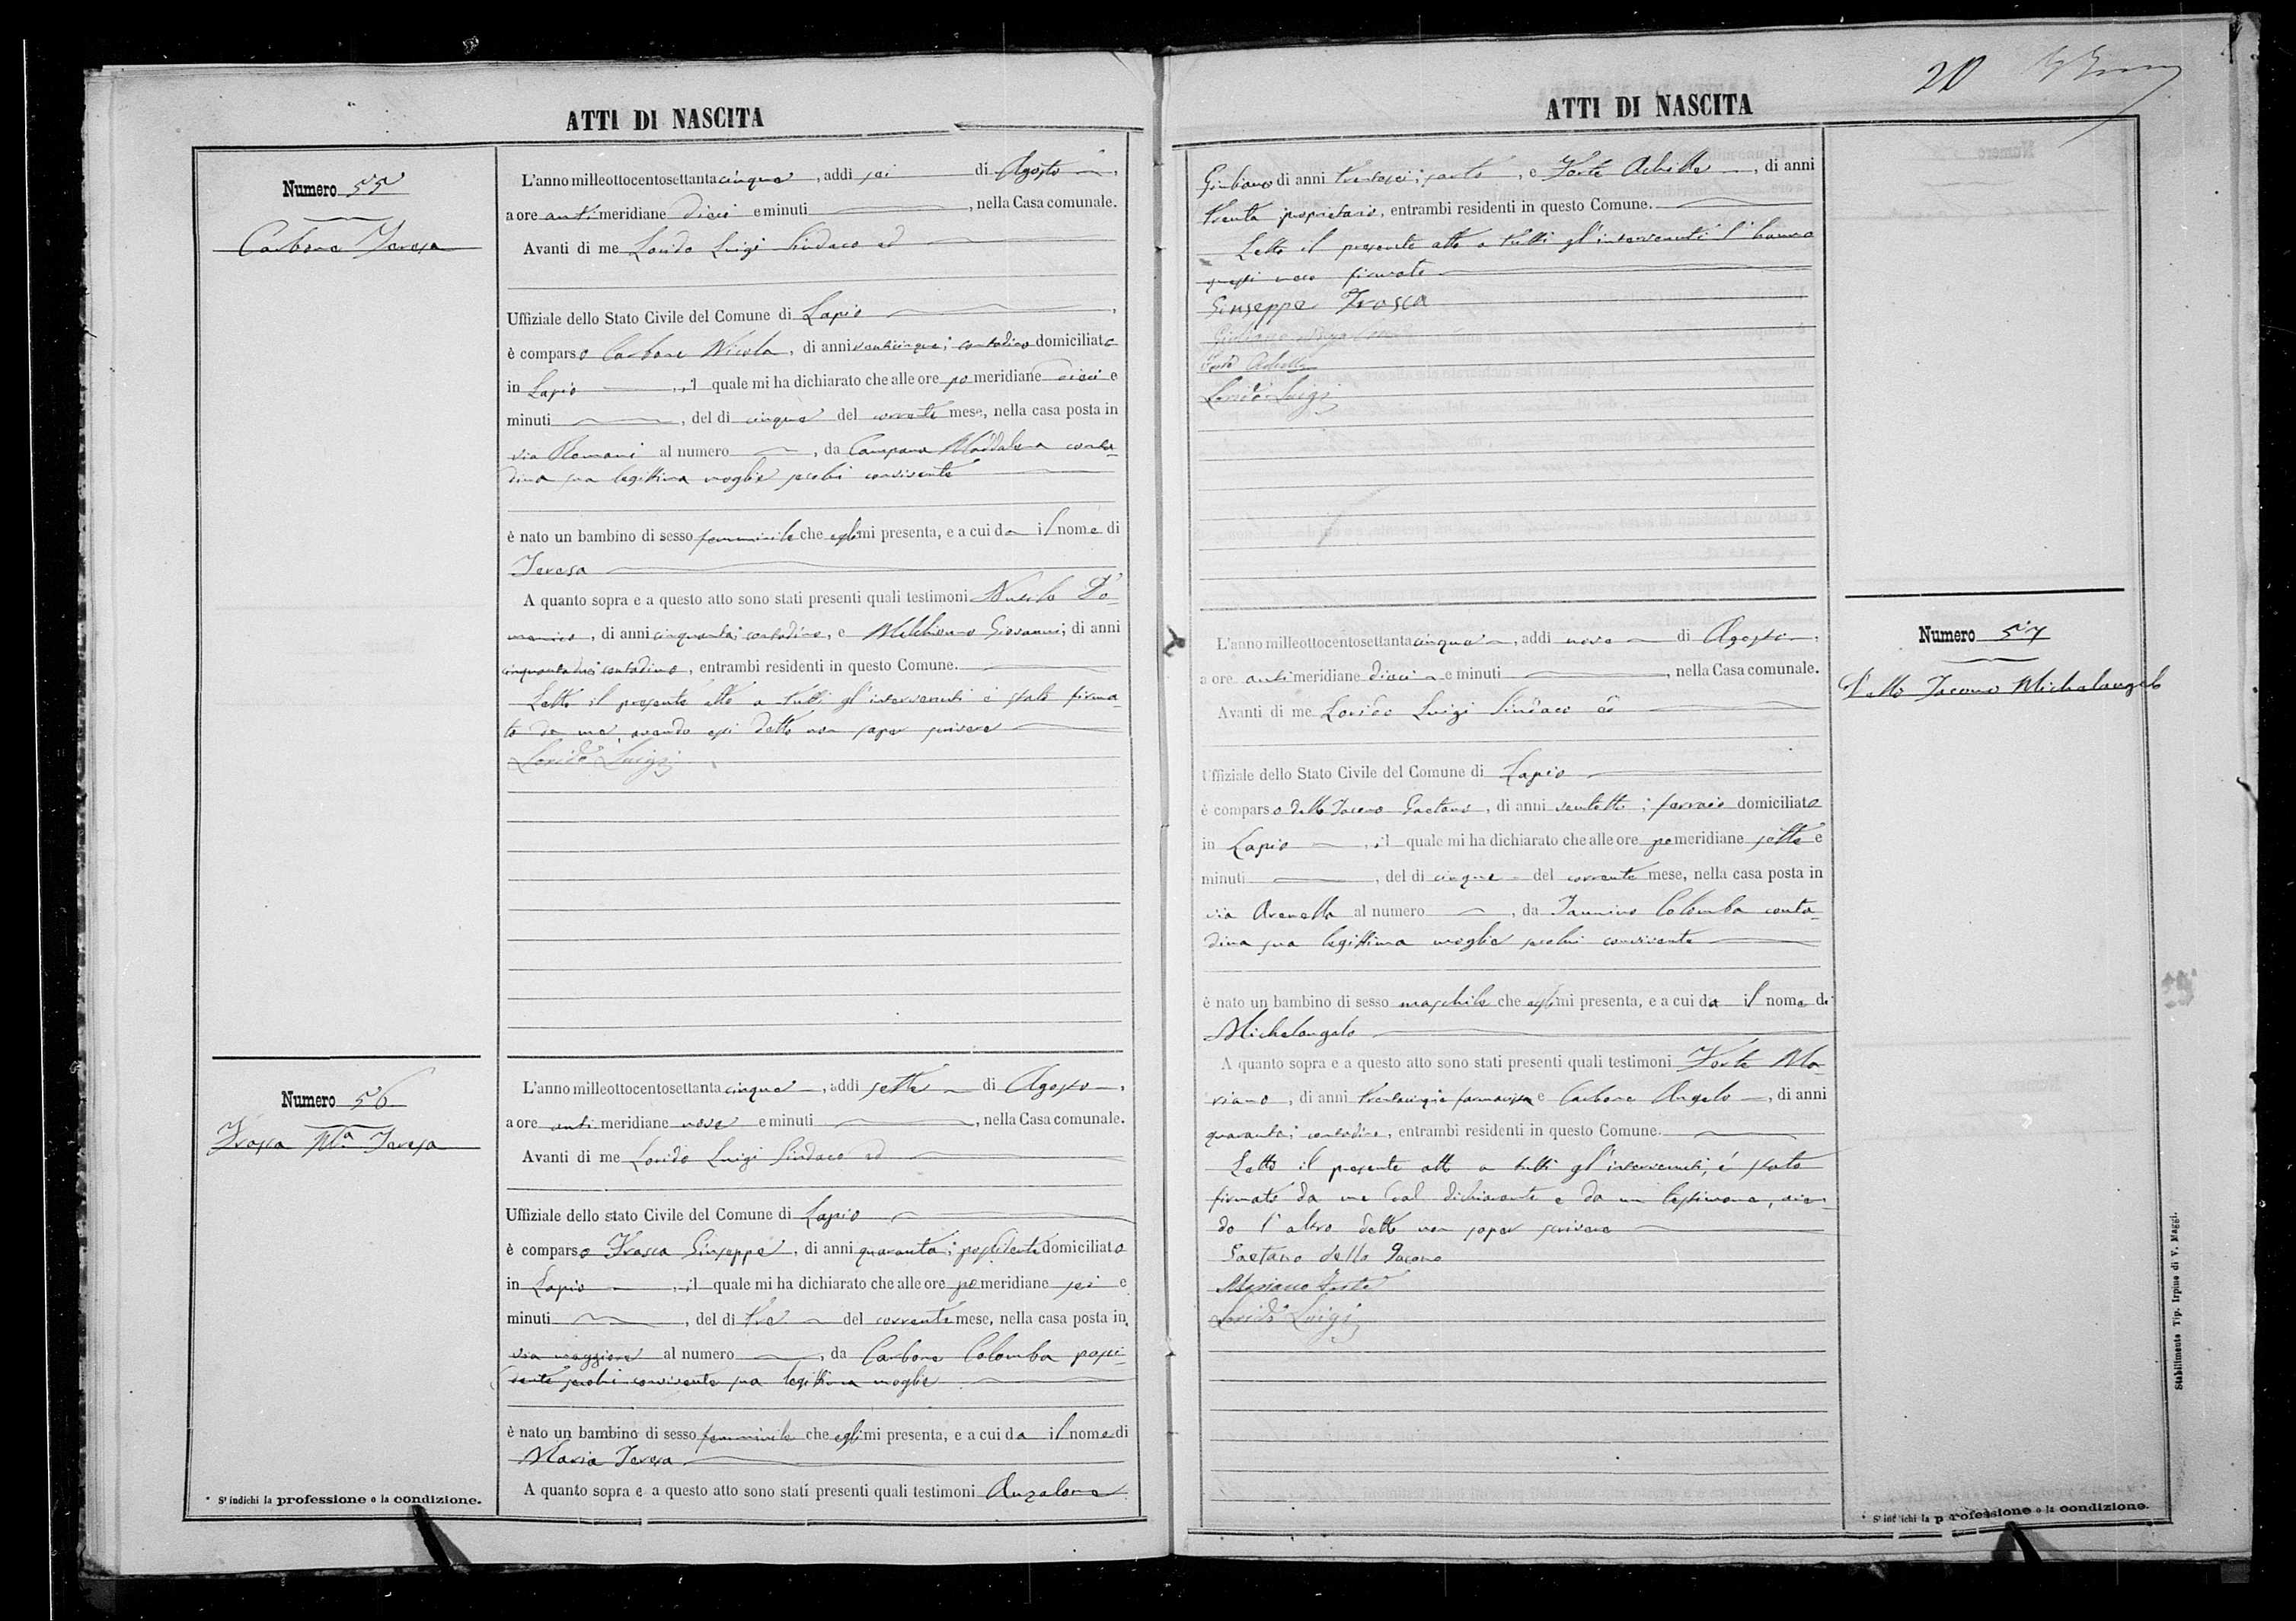 ATTI DI NASCITA
Numero 55
Carbone Teresa
L'anno milleottocentosettantacinque, addì sei di Agosto,
a ore antimeridiane dieci e minuti, nella Casa comunale.
Avanti di me Lorido Luigi Sindaco ed
Uffiziale dello Stato Civile del Comune di Lapio,
è comparso Carbone Nicola, di anni venticinque; contadino domiciliato
in Lapio, il quale mi ha dichiarato che alle ore pomeridiane dieci e
minuti, del dì cinque del corrente mese, nella casa posta in
via Romani al numero, da Campana Maddalena conta-
dina sua legittima moglie secolui convivente
è nato un bambino di sesso femminile che egli mi presenta, e a cui da il nome di
Teresa
A quanto sopra e a questo atto sono stati presenti quali testimoni Do-
menico, di anni cinquanta; contadino, e Melchionno Giovanni; di anni
contadino, entrambi residenti in questo Comune.
Letto il presente atto a tutti gl'intervenuti è stato firma-
to da me, avendo essi detto non saper scrivere
Lorido Luigi
Numero 56
Frasca Ma Teresa
L'anno milleottocentosettantacinque, addì sette di Agosto,
a ore antimeridiane nove e minuti, nella Casa comunale.
Avanti di me Lorido Luigi Sindaco ed
Uffiziale dello stato Civile del Comune di Lapio
è comparso Frasca Giuseppe, di anni quaranta; possidente domiciliato
in Lapio, il quale mi ha dichiarato che alle ore pomeridiane sei e
minuti, del dì tre del corrente mese, nella casa posta in
via maggiore al numero, da Carbone Colomba possi-
dente secolui convivente sua legittima moglie
è nato un bambino di sesso femminile che egli mi presenta, e a cui da il nome di
Maria Teresa
A quanto sopra e a questo atto sono stati presenti quali testimoni Anzalone
* S'indichi la professione o la condizione.
20
ATTI DI NASCITA
Giuliano di anni trentasei; sarto, e Forte Achille, di anni
trenta proprietario, entrambi residenti in questo Comune.
Letto il presente atto a tutti gl'intervenuti l'hanno
questi meco firmato
Giuseppe Frasca
Giuliano
Forte Achille
Lorido Luigi
Numero 57
Dello Iacono Michelangelo
L'anno milleottocentosettantacinque, addì nove di Agosto,
a ore antimeridiane dieci e minuti, nella Casa comunale.
Avanti di me Lorido Luigi Sindaco ed
Uffiziale dello Stato Civile del Comune di Lapio
è comparso dello Iacono Gaetano, di anni ventotto; ferraio domiciliato
in Lapio, il quale mi ha dichiarato che alle ore pomeridiane sette e
minuti, del dì cinque del corrente mese, nella casa posta in
via Arenella al numero, da Iannino Colomba conta-
dina sua legittima moglie secolui convivente
è nato un bambino di sesso maschile che egli mi presenta, e a cui da il nome di
Michelangelo
A quanto sopra e a questo atto sono stati presenti quali testimoni Forte Ma-
riano, di anni trentacinque farmacista e Carbone Angelo, di anni
quaranta; contadino, entrambi residenti in questo Comune.
Letto il presente atto a tutti gl'intervenuti, è stato
firmato da me col dichiarante e da un testimone, aven-
do l'altro detto non saper scrivere
Gaetano dello Iacono
Mariano Forte
Lorido Luigi
* S'indichi la professione o la condizione.
Stabilimento Tip. Irpino di V. Maggi.